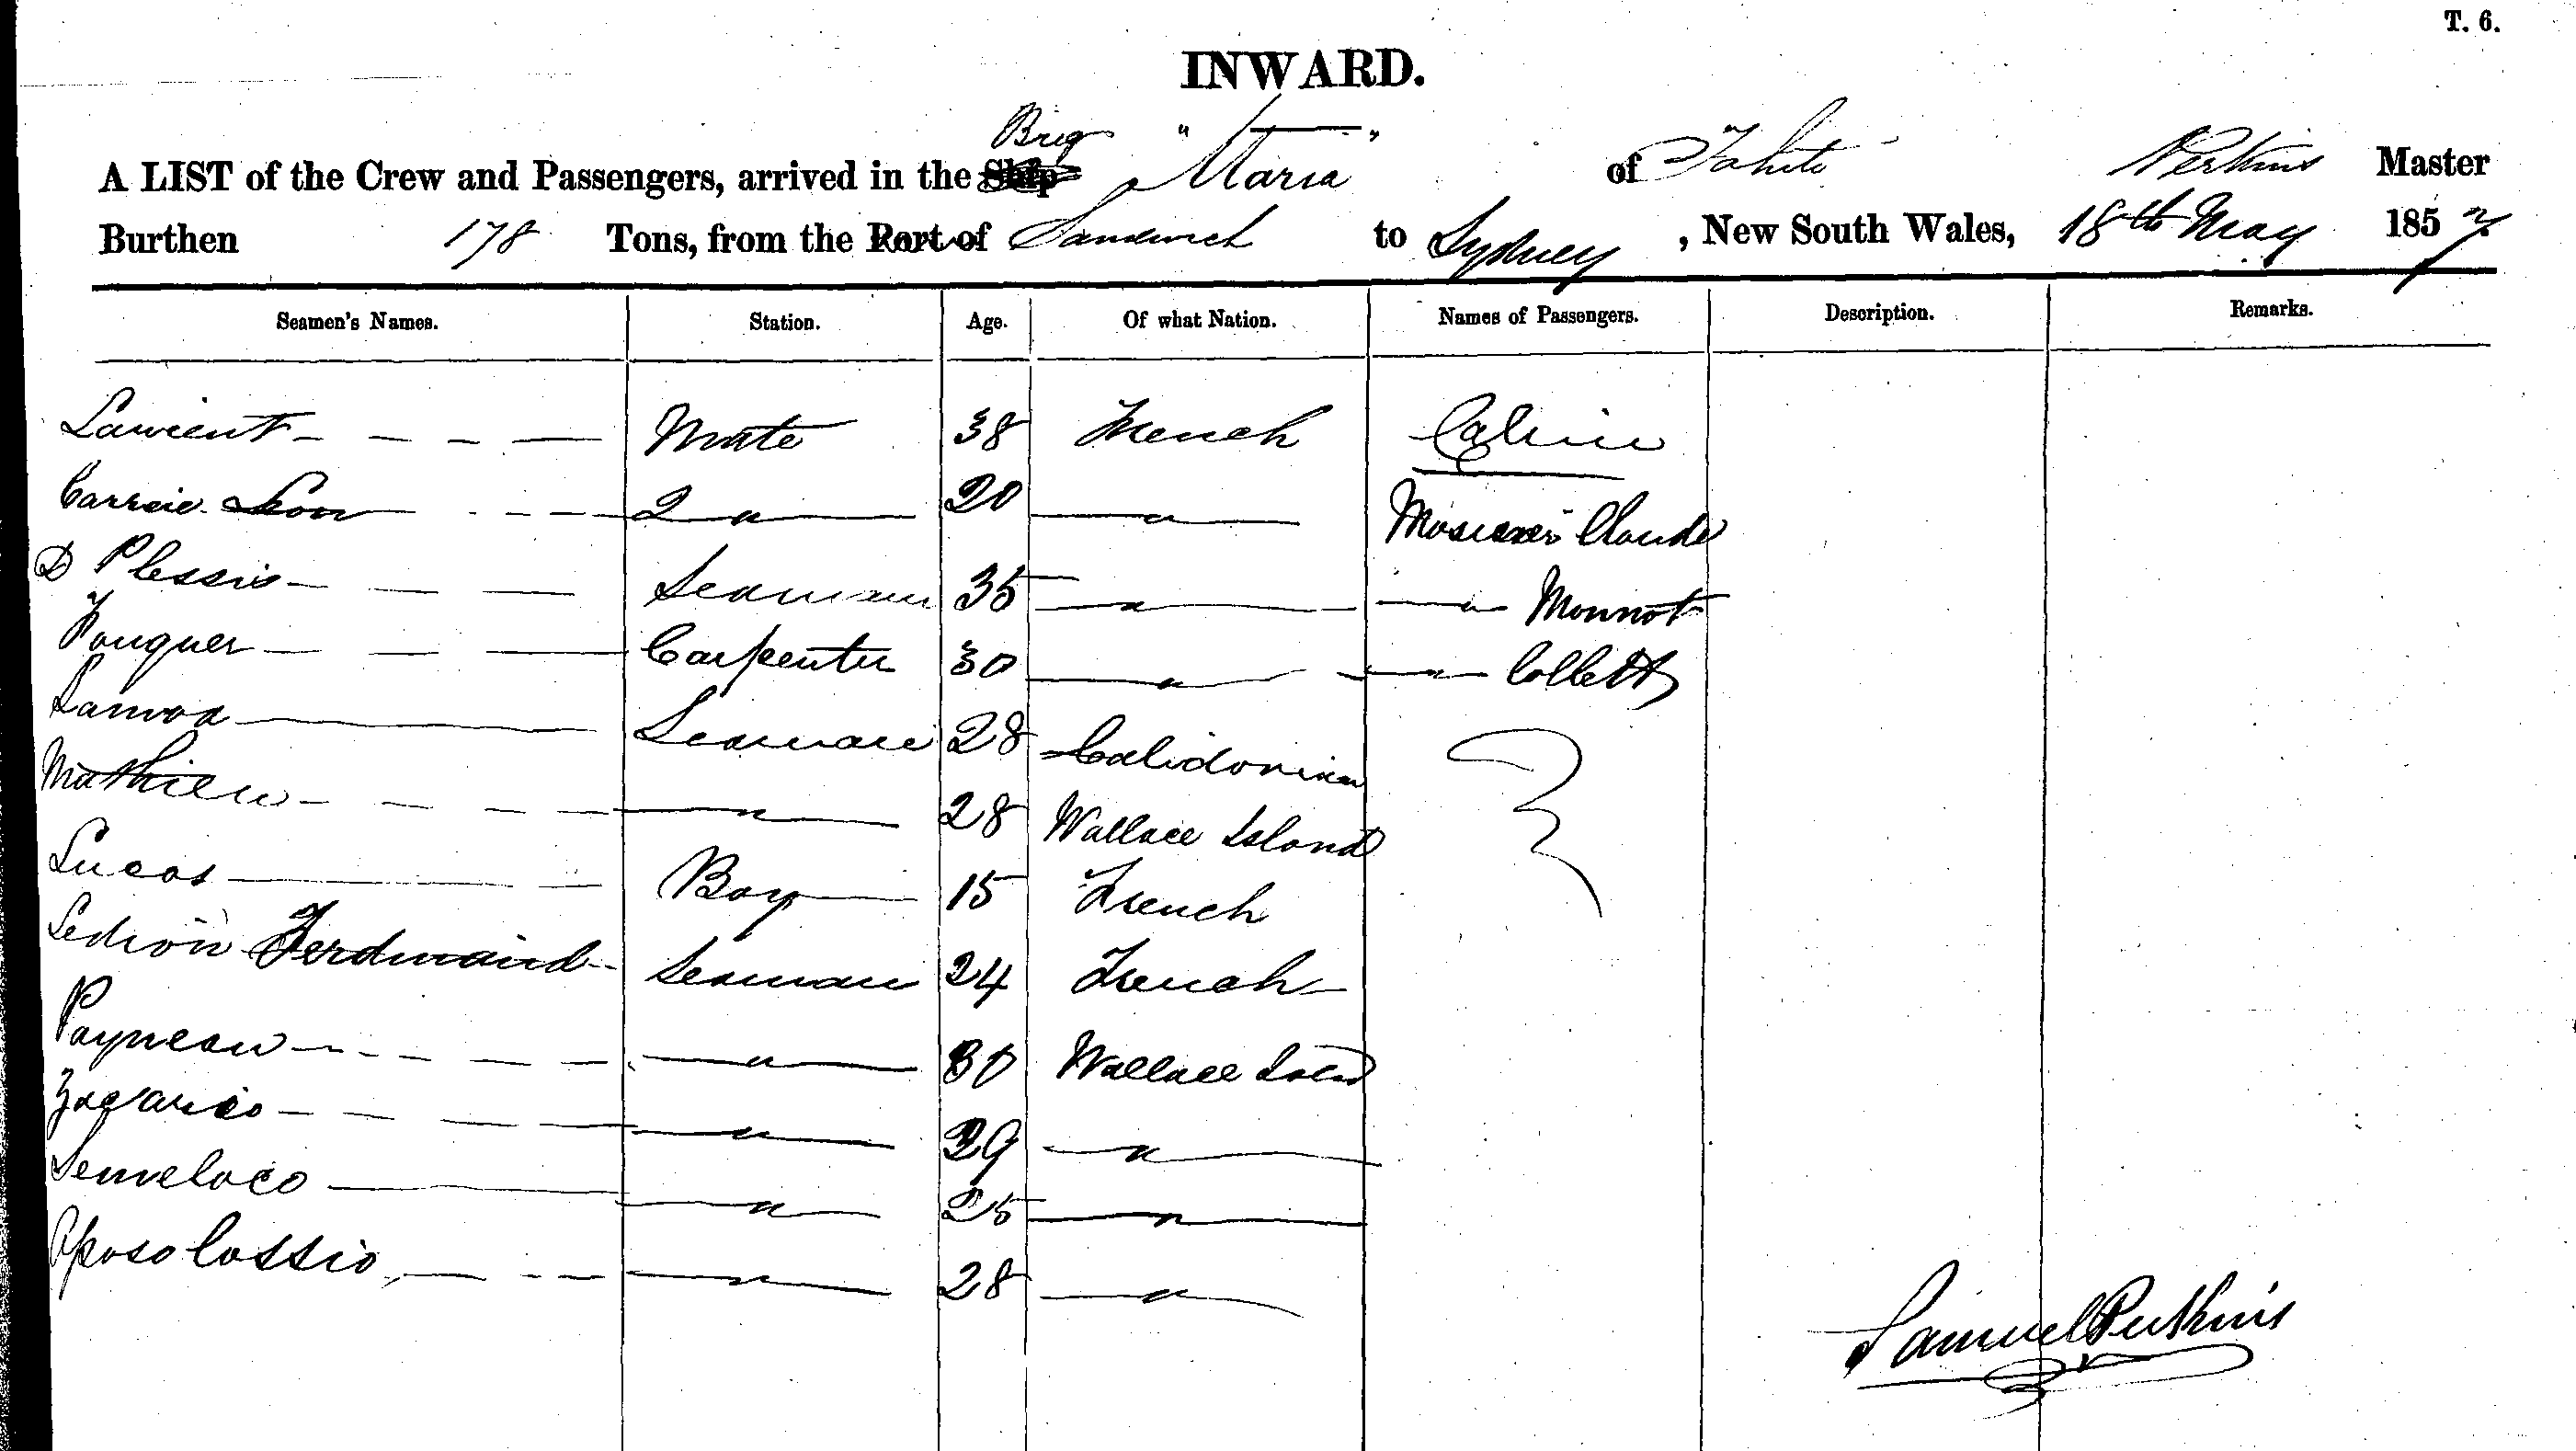 T. 6.
INWARD.
Brig "Maria"
A LIST of the Crew and Passengers, arrived in the Ship of Tahiti Perkins Master
Burthen 178 Tons, from the Port of Sandwich to Sydney, New South Wales, 18th May 1857.
Seamen's Names. Station. Age. Of what Nation. Names of Passengers. Description. Remarks.
Laurient - - - - Mate 38 French Cabin
Carreie Leon - - - 2 " 20 "
D Plessis - - - Seaman 35 " " Monnot
Fouquer - - - Carpenter 30 " " Collett
Seaman 28 Calidonian
Mathieu - - - " 28 Wallace Island
Lucas - - Boy 15 French
Ledion Ferdinand - Seaman 24 French
Payneau - - - - " 30 Wallace Island
Zacario - - - " 29 "
Semeloco - " 25 "
Aposolossio, - - - " 28 "
Samuel Perkins